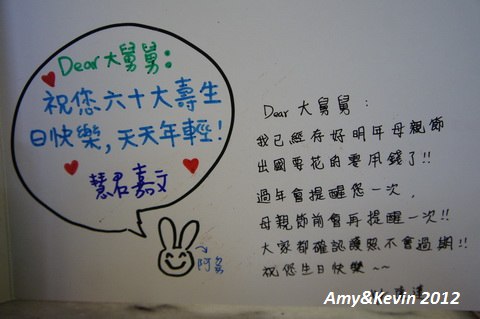 Dear 大舅舅：
祝您六十大壽生
日快樂，天天年輕！
慧君嘉文
Dear 大舅舅：
我已經存好明年母親節
出國要花的費用錢了!!
過年會提醒您一次，
母親節前會再提醒一次!!
大家都確認護照不會過期!!
祝您生日快樂~~
Amy&Kevin 2012